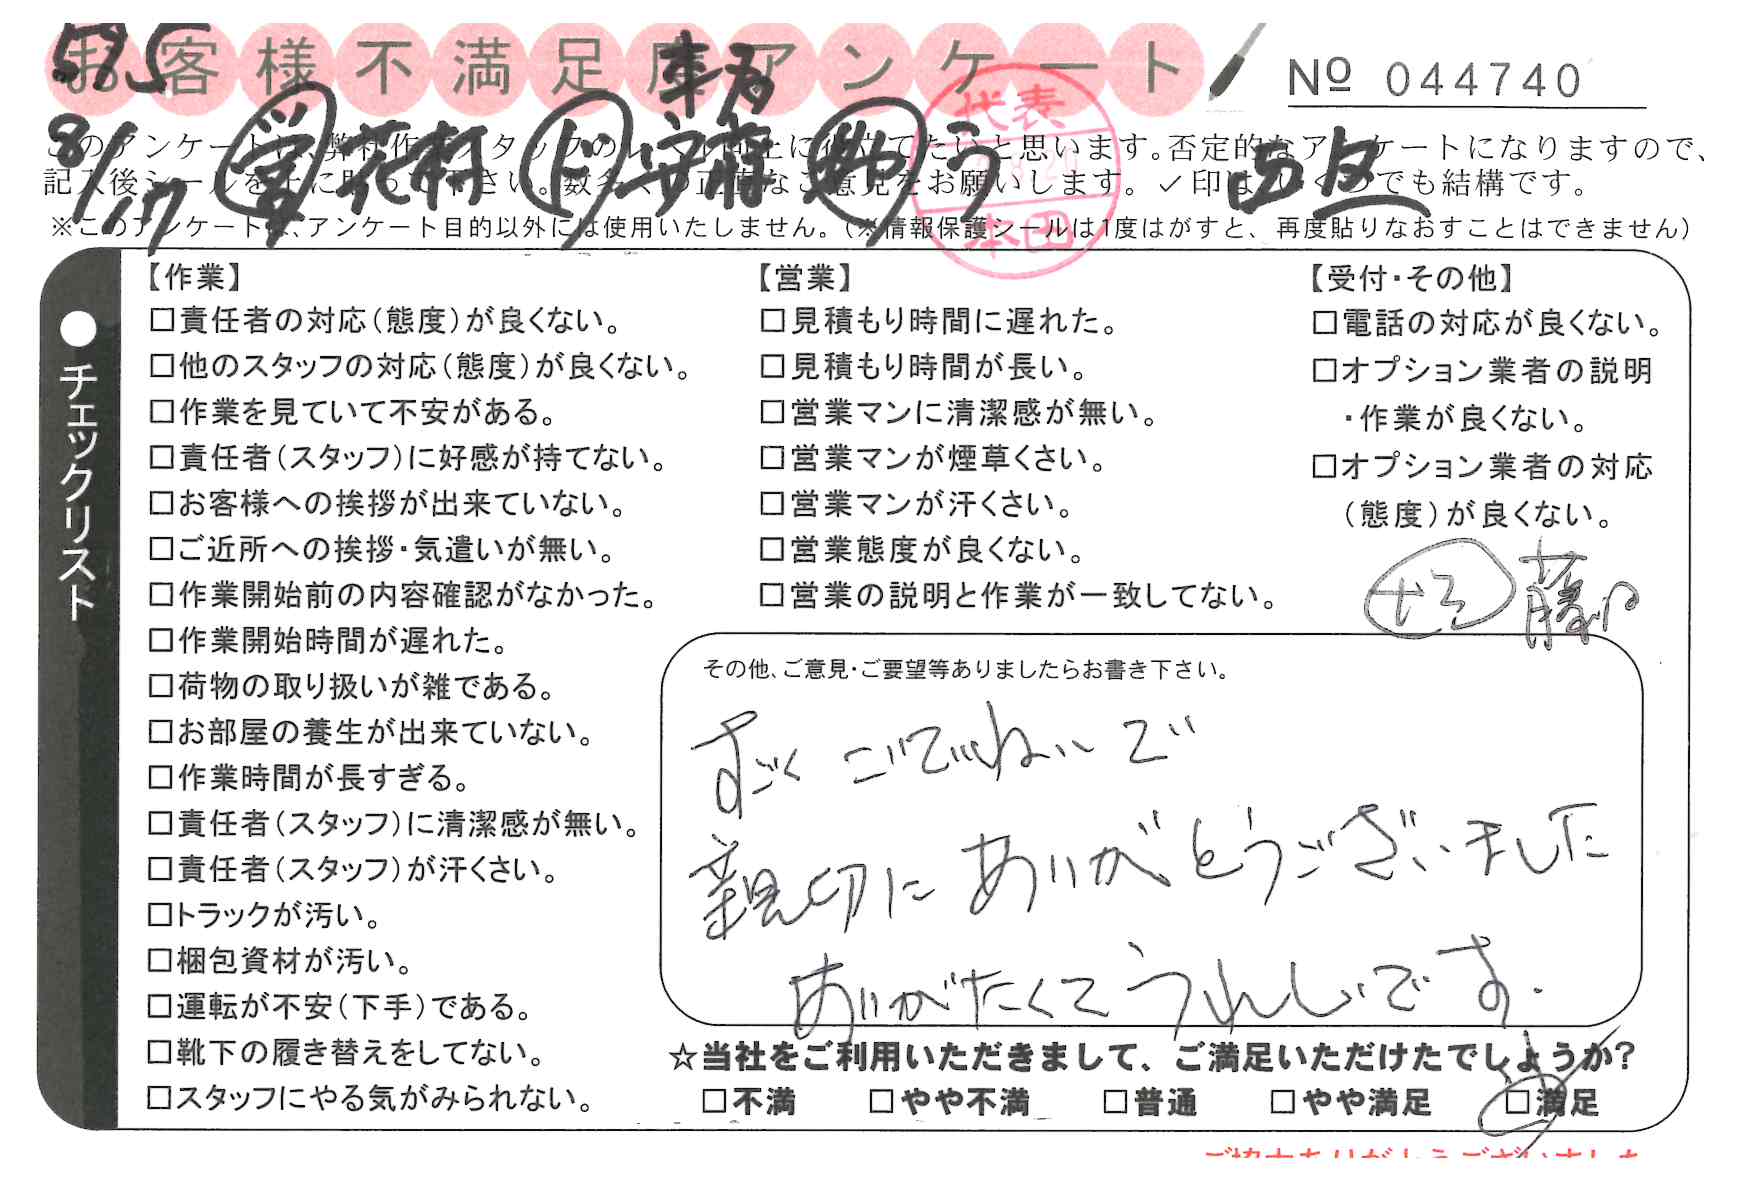 お客様不満足度アンケート
No 044740
595
8/17
このアンケートは、弊社作業スタッフのレベル向上に役立てたいと思います。否定的なアンケートになりますので、
記入後シールを上に貼って下さい。数多くの正直なご意見をお願いします。✓印はいくつでも結構です。
※このアンケートは、アンケート目的以外には使用いたしません。(※情報保護シールは1度はがすと、再度貼りなおすことはできません)
代表
本田
●チェックリスト
【作業】
□責任者の対応(態度)が良くない。
□他のスタッフの対応(態度)が良くない。
□作業を見ていて不安がある。
□責任者(スタッフ)に好感が持てない。
□お客様への挨拶が出来ていない。
□ご近所への挨拶・気遣いが無い。
□作業開始前の内容確認がなかった。
□作業開始時間が遅れた。
□荷物の取り扱いが雑である。
□お部屋の養生が出来ていない。
□作業時間が長すぎる。
□責任者(スタッフ)に清潔感が無い。
□責任者(スタッフ)が汗くさい。
□トラックが汚い。
□梱包資材が汚い。
□運転が不安(下手)である。
□靴下の履き替えをしてない。
□スタッフにやる気がみられない。
【営業】
□見積もり時間に遅れた。
□見積もり時間が長い。
□営業マンに清潔感が無い。
□営業マンが煙草くさい。
□営業マンが汗くさい。
□営業態度が良くない。
□営業の説明と作業が一致してない。
【受付・その他】
□電話の対応が良くない。
□オプション業者の説明
・作業が良くない。
□オプション業者の対応
(態度)が良くない。
その他、ご意見・ご要望等ありましたらお書き下さい。
すごく ごていねいで
親切に ありがとうございました
ありがたくて うれしいです.
☆当社をご利用いただきまして、ご満足いただけたでしょうか?
□不満 □やや不満 □普通 □やや満足 □満足
ご協力ありがとうございました